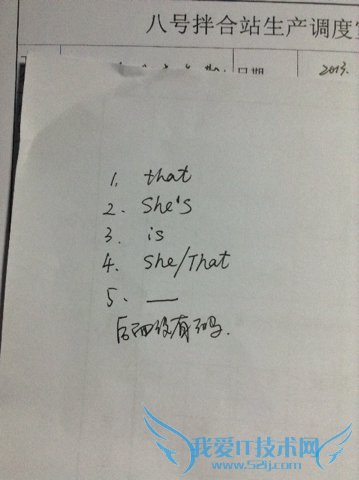 八号拌合站生产调度室
日期
2013.
1. that
2. She's
3. is
4. She/That
5. __
后面没有了吗.
我爱IT技术网
www.52ij.com